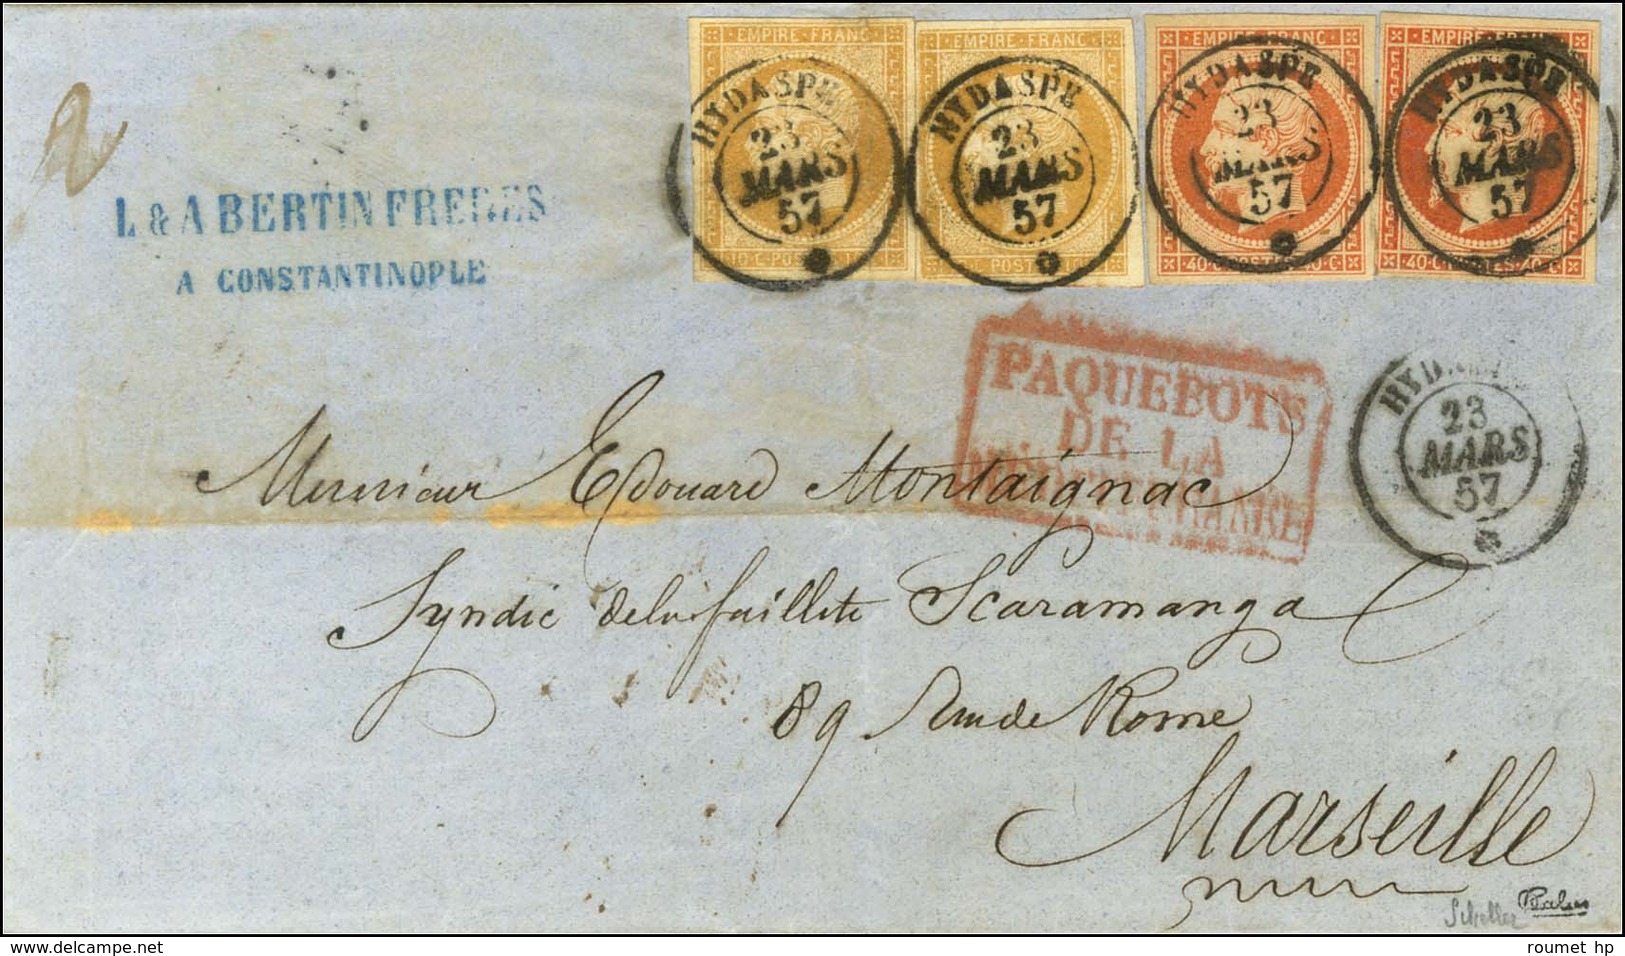 2
L & A BERTIN FRERES
A CONSTANTINOPLE
EMPIRE · FRANC ·
HYDASPE
23
MARS
57
10 · C · POSTES
EMPIRE · FRANC ·
HYDASPE
23
MARS
57
POSTES
EMPIRE · FRANC ·
HYDASPE
23
MARS
57
40 · C · POSTES · 40 · C ·
EMPIRE · FRANC
HYDASPE
23
MARS
57
40 · C · POSTES · 40 · C ·
PAQUEBOTS
DE LA
MÉDITERRANÉE
HYDASPE
23
MARS
57
Monsieur Edouard Montaignac
Syndic de la faillite Scaramanga
89 Rue de Rome
Marseille
Scheller
Calves
www.delcampe.net
roumet hp